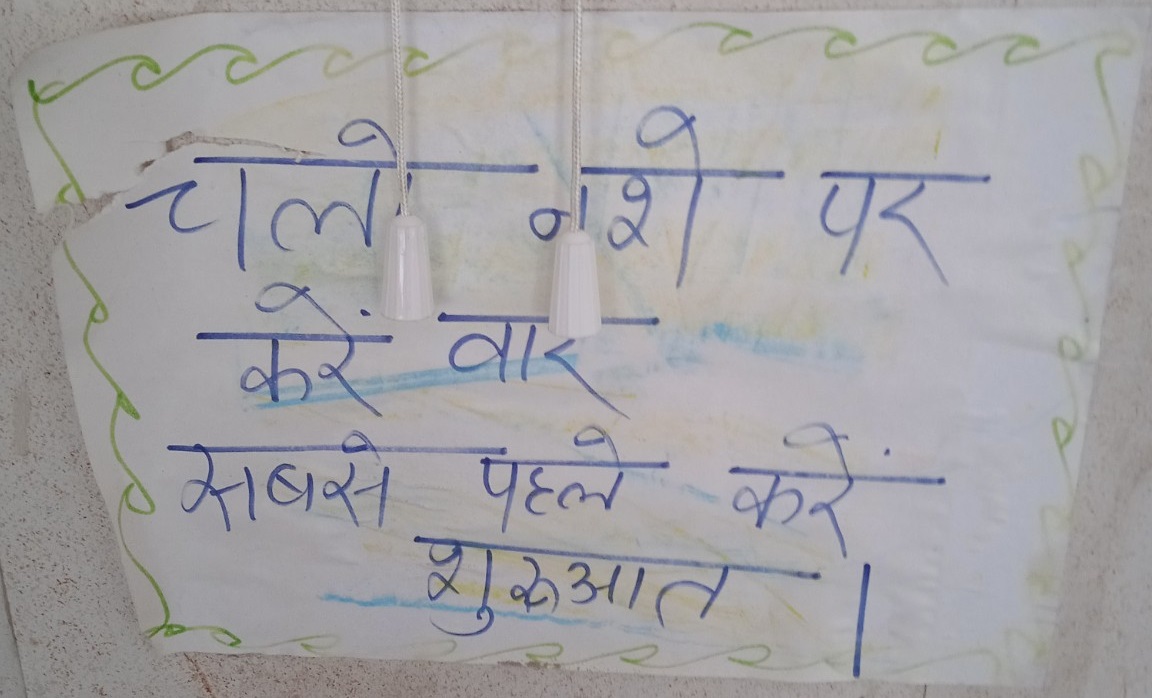 चलो नशे पर
करें वार
सबसे पहले करें
शुरुआत ।